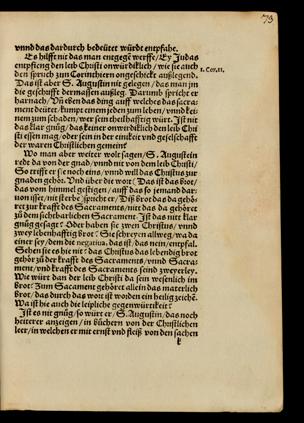 73
vnnd das dardurch bedeütet würde entpfahe.
Es hilfft nit das man entgegẽ werffe/ Ey Judas
entpfieng den leib Christi onwürdiklich/ wie sie auch
1. Cor. 11.
den spruch zum Corinthiern ongeschickt außlegend.
Das ist aber S. Augustin nit gelegen/ das man im
die geschrifft dermassen außleg. Darumb spricht er
harnach/ Vñ eßen das ding auff welches das sacra-
ment deütet/ kumpt einem jeden zum leben/ vnnd kei-
nem zum schaden/ wer sein theilhafftig würt. Ist nit
das klar gnůg/ das keiner onwirdiklich den leib Chri
sti essen mag/ oder sein in der einikeit vnd geselschafft
der waren Christlichen gemein?
Wo man aber weiter wolt sagen/ S. Augustein
redt da von der gnad/ vnnd nit von dem leib Christi/
So trifft er sie noch eins/ vnnd will das Christus zur
gnaden gehör. Vnd über die wort (Das ist das brot/
das vom himmel gestigen/ auff das so jemand dar-
uon isset/ nit sterbe) spricht er/ Diß brot das da gehö-
ret zur krafft des Sacraments/ nitt das da gehöret
zů dem sichtbarlichen Sacrament. Ist das nitt klar
gnůg gesagt? Oder haben sie zwen Christus/ vnnd
zwey lebenhafftig brot? Sie schreyen allweg/ wa da
einer sey/ dem die negatiua, das ist/ das nein/ entpfal.
Sehen sie es hie nit? das Christus das lebendig brot
gehör zů der krafft des Sacraments/ vnnd Sacra
ment/ vnd krafft des Sacraments seind zweyerley.
Wie würt dan der leib Christi da sein wesenlich im
brot? Zum Sacament gehöret allein das materlich
brot/ das durch das wort ist worden ein heilig zeichẽ.
Wa ist hie auch die leipliche gegenwürtikeit?
Ist es nit gnůg/ so würt er/ S. Augustin/ das noch
heiterer anzeigen/ in büchern von der Christlichen
leer/ in welchen er mit ernst vnd fleiß von den sachen